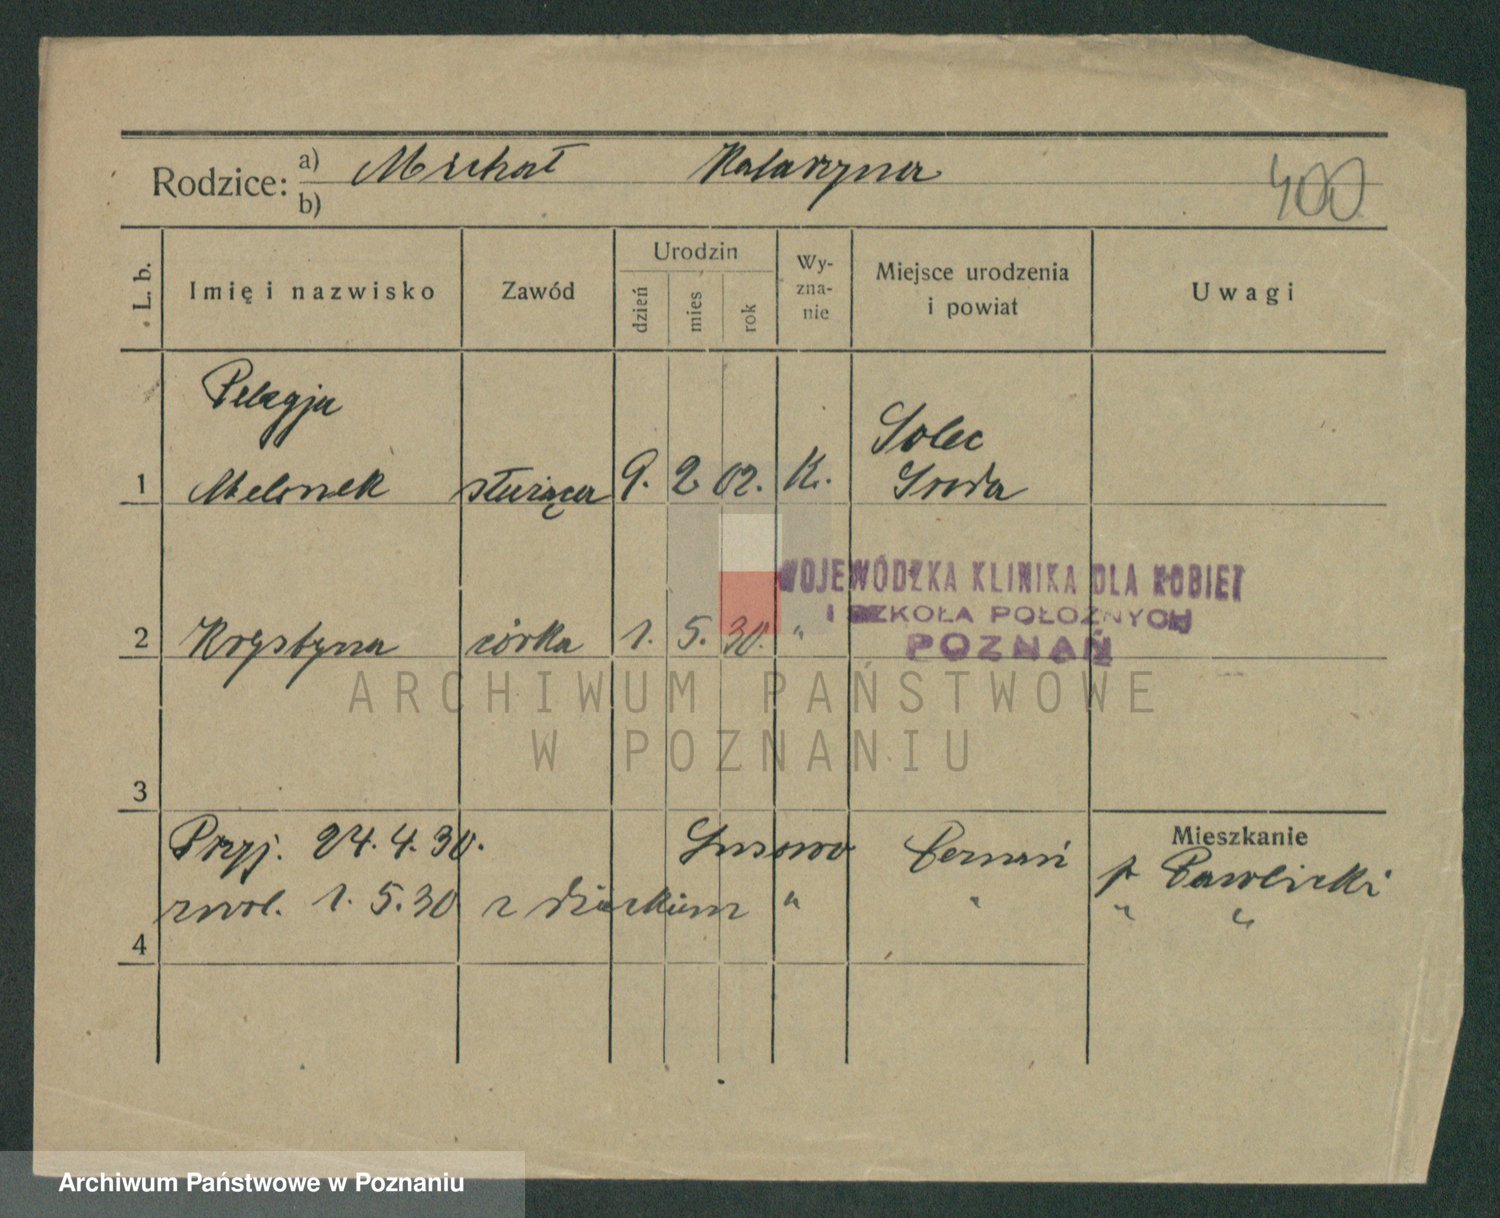 Rodzice: a) Michał Katarzyna 400
b)
L. b. Imię i nazwisko Zawód Urodzin dzień mies rok Wy-zna-nie Miejsce urodzenia i powiat Uwagi
Pelagja Solec
1 Melonek służąca 9. 2 02. K. Środa
WOJEWÓDZKA KLINIKA DLA KOBIET
I SZKOŁA POŁOŻNYCH
2 Krystyna córka 1. 5. 30. "
POZNAŃ
ARCHIWUM PAŃSTWOWE
W POZNANIU
3
Mieszkanie
Przyj. 24. 4. 30. Lusowo Poznań p. Pawlicki
zwol. 1. 5. 30 z dzieckiem " " " "
4
Archiwum Państwowe w Poznaniu